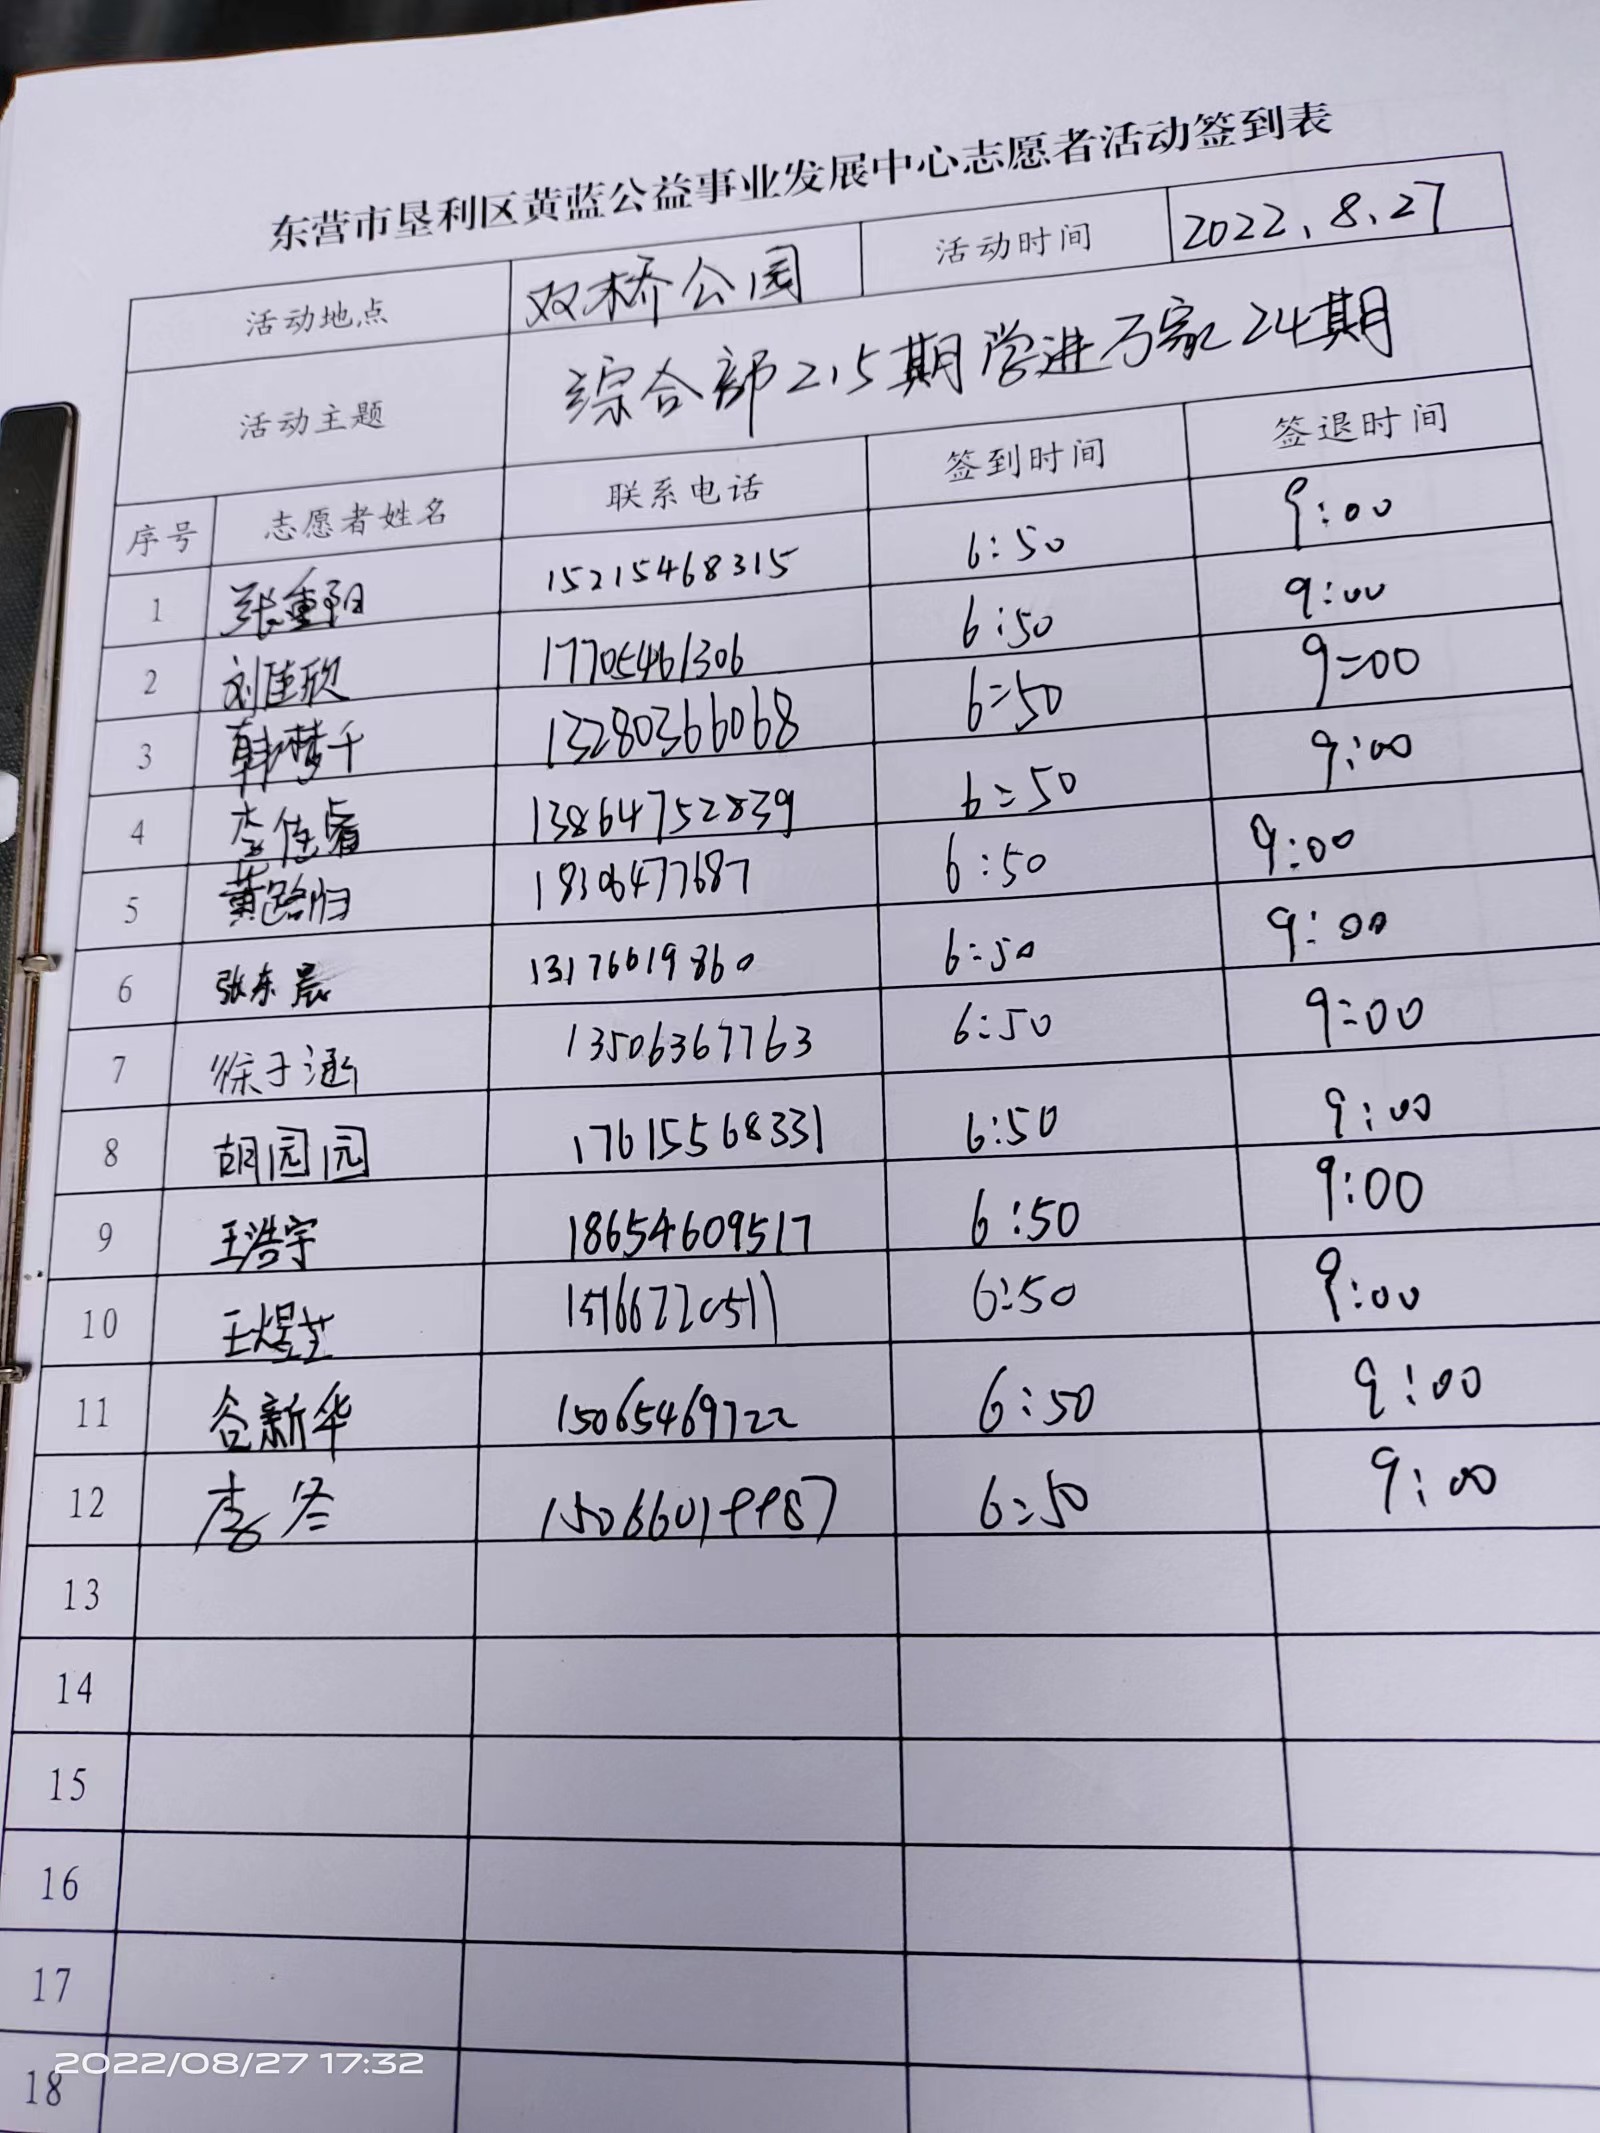 东营市垦利区黄蓝公益事业发展中心志愿者活动签到表
活动地点 双桥公园 活动时间 2022、8、27
活动主题 综合部2、5期学进万家24期
序号 志愿者姓名 联系电话 签到时间 签退时间
1 张重阳 15215468315 6:50 9:00
2 刘佳欣 17705461306 6:50 9:00
3 韩梦千 13280366068 6:50 9:00
4 李佳睿 13864752839 6:50 9:00
5 黄路归 18306477687 6:50 9:00
6 张东晨 13176619860 6:50 9:00
7 徐于涵 13506367763 6:50 9:00
8 胡园园 17615568331 6:50 9:00
9 王浩宇 18654609517 6:50 9:00
10 王煜芝 15166720511 6:50 9:00
11 谷新华 15065469722 6:50 9:00
12 李冬 15066019987 6:50 9:00
13
14
15
16
17
18
2022/08/27 17:32